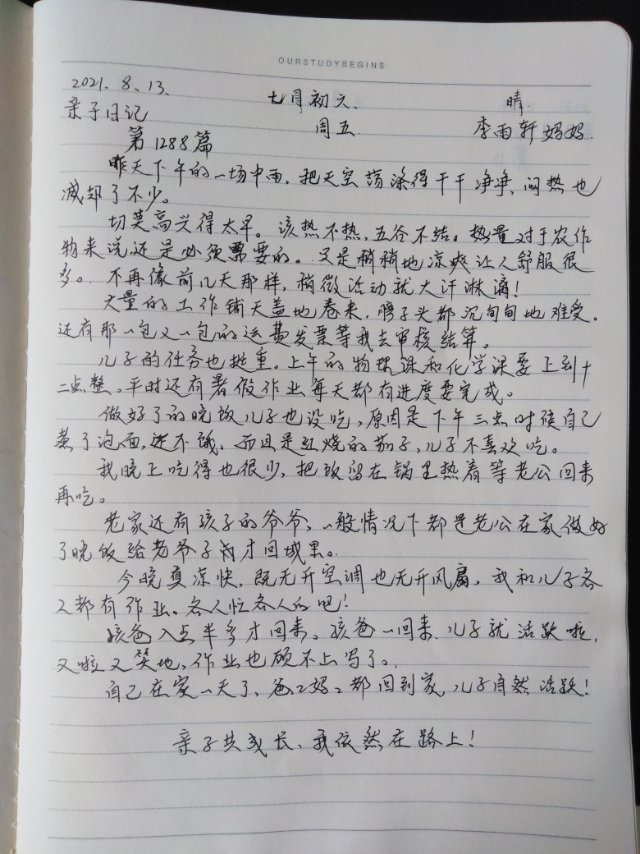 OURSTUDYBEGINS
2021.8.13. 七月初六 晴
亲子日记 周五 李雨轩妈妈
第1288篇
昨天下午的一场中雨，把天空荡涤得干干净净，闷热也
减却了不少。
切莫高兴得太早。该热不热，五谷不结。热量对于农作
物来说还是必须需要的。又是稍稍地凉爽让人舒服很
多。不再像前几天那样，稍微活动就大汗淋漓！
大量的工作铺天盖地卷来，膀子头都沉甸甸地难受。
还有那一包又一包的运费发票等我去审核结算。
儿子的任务也挺重。上午的物理课和化学课要上到十
二点整。平时还有暑假作业每天都有进度要完成。
做好了的晚饭儿子也没吃，原因是下午三点时候自己
蒸了泡面，还不饿，而且是红烧的茄子，儿子不喜欢吃。
我晚上吃得也很少，把饭留在锅里热着等老公回来
再吃。
老家还有孩子的爷爷，一般情况下都是老公在家做好
了晚饭给老爷子，才回城里。
今晚真凉快，既无开空调也无开风扇，我和儿子各
又都有作业。各人忙各人的吧！
孩爸八点半多才回来。孩爸一回来，儿子就活跃啦，
又啦又笑地，作业也顾不上写了。
自己在家一天了，爸爸妈妈都回到家，儿子自然活跃！
亲子共成长，我依然在路上！